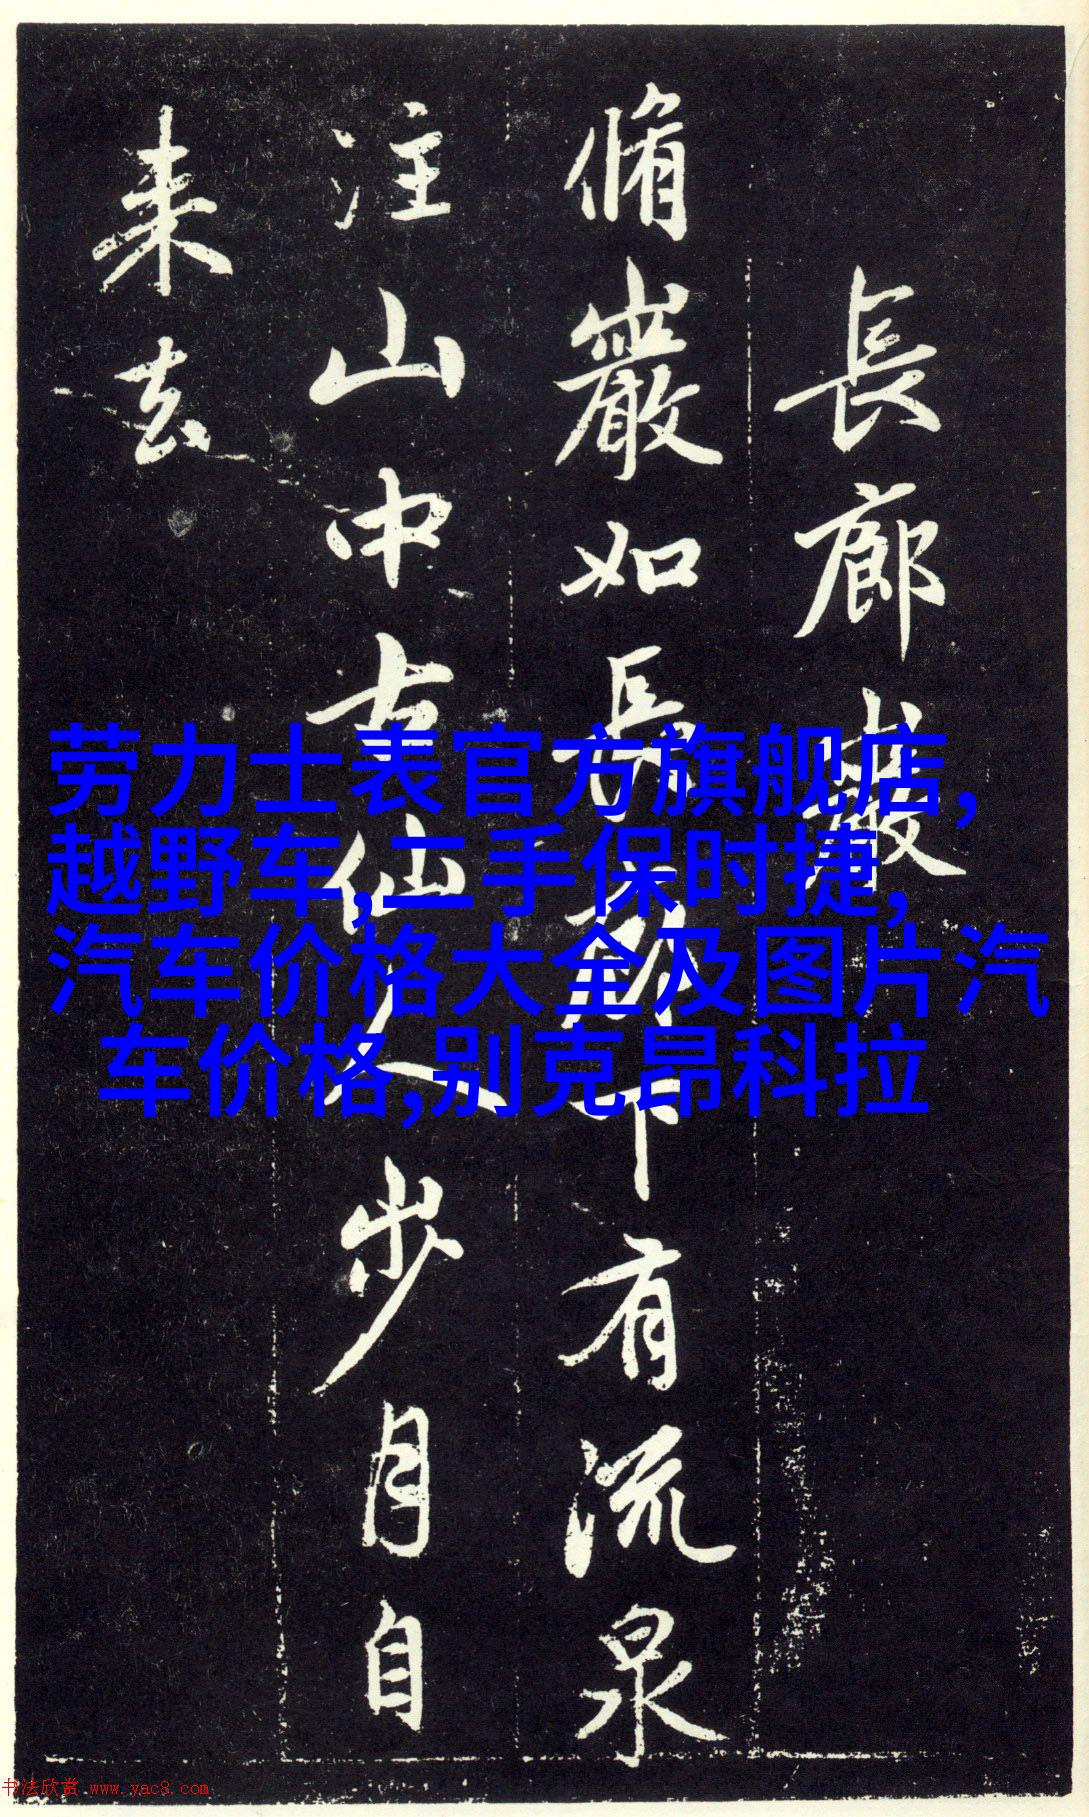 長廊巖
脩巖如長廊下有流泉
注山中古仙人步月自
来去
劳力士表官方旗舰店,
越野车,二手保时捷,
汽车价格大全及图片汽
车价格,别克昂科拉
书法欣赏 www.yac8.com